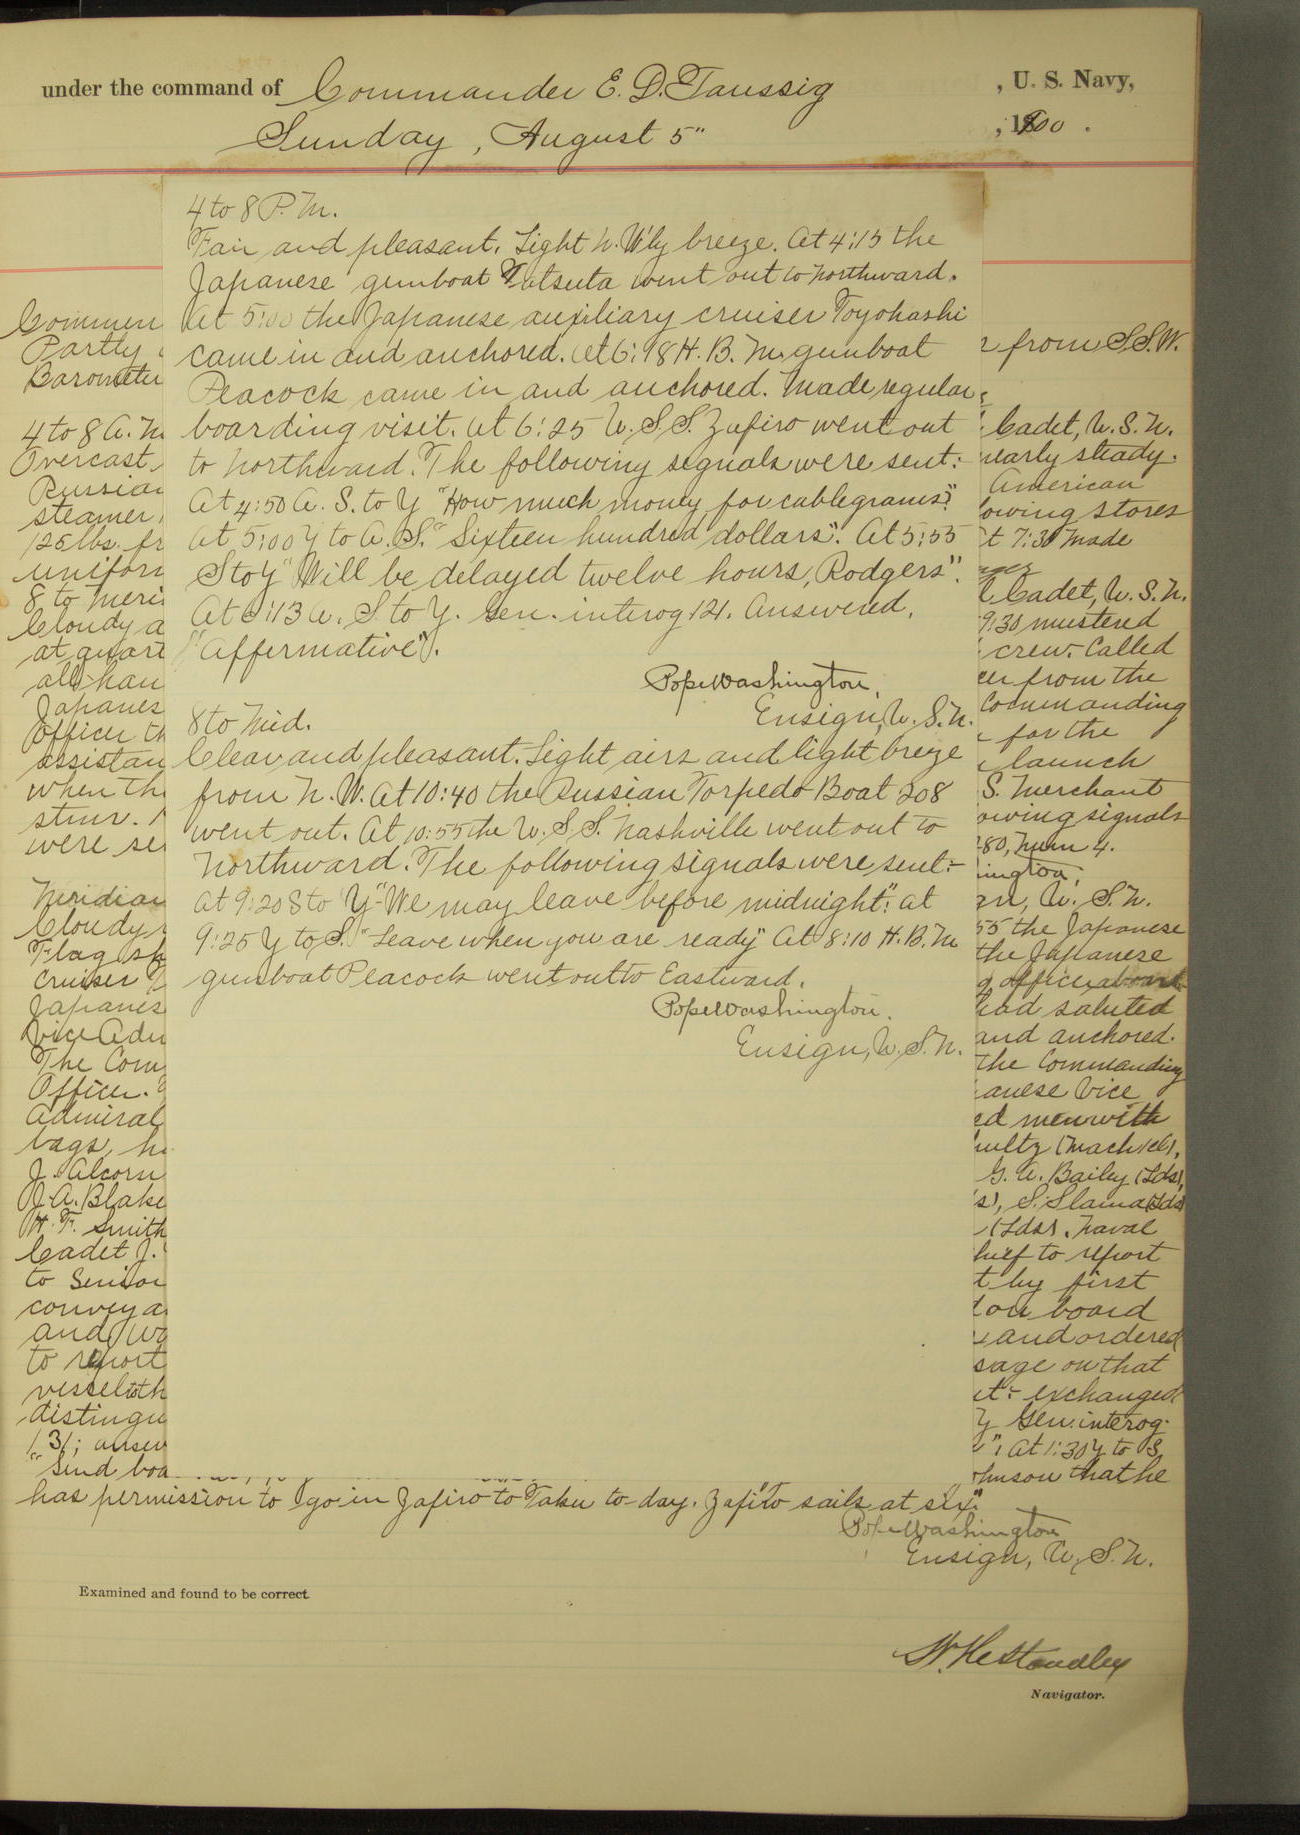 under the command of Commander E. D. Taussig , U. S. Navy,
Sunday, August 5" , 1900 .
4 to 8 P. M.
Fair and pleasant. Light N. W'ly breeze. At 4:15 the
Japanese gunboat Tatsuta went out to northward.
At 5:00 the Japanese auxiliary cruiser Toyohashi
came in and anchored. At 6:18 H. B. M. gunboat
Peacock came in and anchored. Made regular
boarding visit. At 6:25 U. S. S. Zafiro went out
to Northward. The following signals were sent:-
At 4:50 A. S. to Y "How much money for cablegrams?"
At 5:00 Y to A. S. "Sixteen hundred dollars". At 5:55
S to Y "Will be delayed twelve hours, Rodgers".
At 6:13 A. S to Y. Gen. interog 121. Answered,
"Affermative".
Pope Washington,
Ensign, U. S. N.
8 to Mid.
Clear and pleasant. Light airs and light breeze
from N. W. At 10:40 the Russian Torpedo Boat 208
went out. At 10:55 the U. S. S. Nashville went out to
Northward. The following signals were sent:-
At 9:20 S to Y "We may leave before midnight". At
9:25 Y to S. "Leave when you are ready" At 8:10 H. B. M
gunboat Peacock went out to Eastward.
Pope Washington.
Ensign, U. S. N.
Commen
Partly
Baromete
4 to 8 A. M
Overcast
Russian
steamer
125 lbs. fr
uniform
8 to Meri
Cloudy a
at quart
all han
Japanes
Officer th
assistan
when the
stmr.
were se
Meridian
Cloudy
Flag sh
Cruiser
Japanes
Vice Adm
The Com
Officer.
Admiral
bags, h
J. Alcorn
J. A. Blake
H. F. Smith
Cadet J.
to Senior
convey a
and
to report
vessel th
distingu
131; answ
"Send boa
r from S.S.W.
Cadet, U. S. N.
nearly steady.
American
owing stores
t 7:30 Made
l Cadet, U. S. N.
9:30 mustered
crew. Called
er from the
Commanding
for the
launch
S. Merchant
owing signals
280, Num 4.
ington,
gn, U. S. N.
55 the Japanese
the Japanese
g officer aboard
had saluted
and anchored.
the Commanding
anese Vice
ed men with
hultz (Mach 1cl),
G. A. Bailey (Lds),
s), S. Slama (Lds)
(Lds). Naval
hief to report
t by first
on board
and ordered
sage on that
et:- exchanged
Y Gen. interog.
". At 1:30 Y to S,
ohnson that he
has permission to go in Zafiro to Taku to-day. Zafiro sails at six."
Pope Washington
Ensign, U. S. N.
Examined and found to be correct.
W. H. Standley
Navigator.